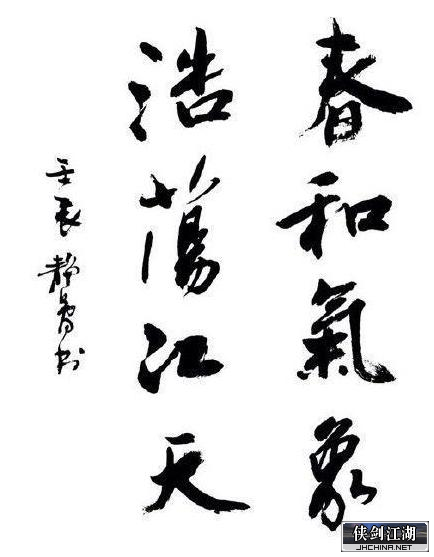 春和氣象
浩蕩江天
壬辰
侠剑江湖
JHCHINA.NET